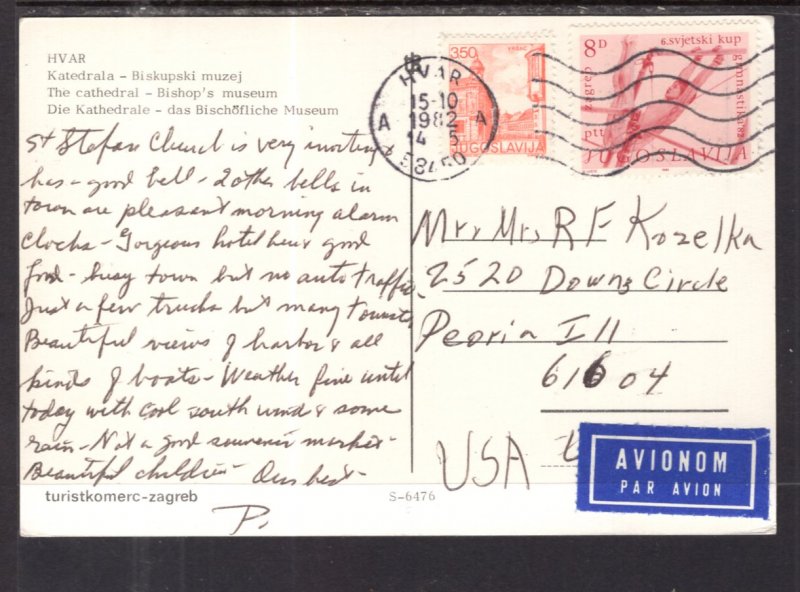 HVAR
Katedrala – Biskupski muzej
The cathedral – Bishop's museum
Die Kathedrale – das Bischöfliche Museum
St Stefan Church is very interesting
has - good bell - 2 other bells in
town are pleasant morning alarm
clocks - Gorgeous hotel here good
food - busy town but no auto traffic
Just a few trucks but many tourists
Beautiful views of harbor & all
kinds of boats - Weather fine until
today with cool south wind & some
rain - Not a good souvenir market -
Beautiful children - Our best -
P.
turistkomerc-zagreb
S-6476
HVAR
15-10
A 1982 A
14 5
58450
350
VRŠAC
JUGOSLAVIJA
8 D
6. svjetski kup
zagreb
gimnastika '82
ptt
JUGOSLAVIJA
Mr, Mrs, R F Kozelka
2520 Downs Circle
Peoria Ill
61604
USA
AVIONOM
PAR AVION